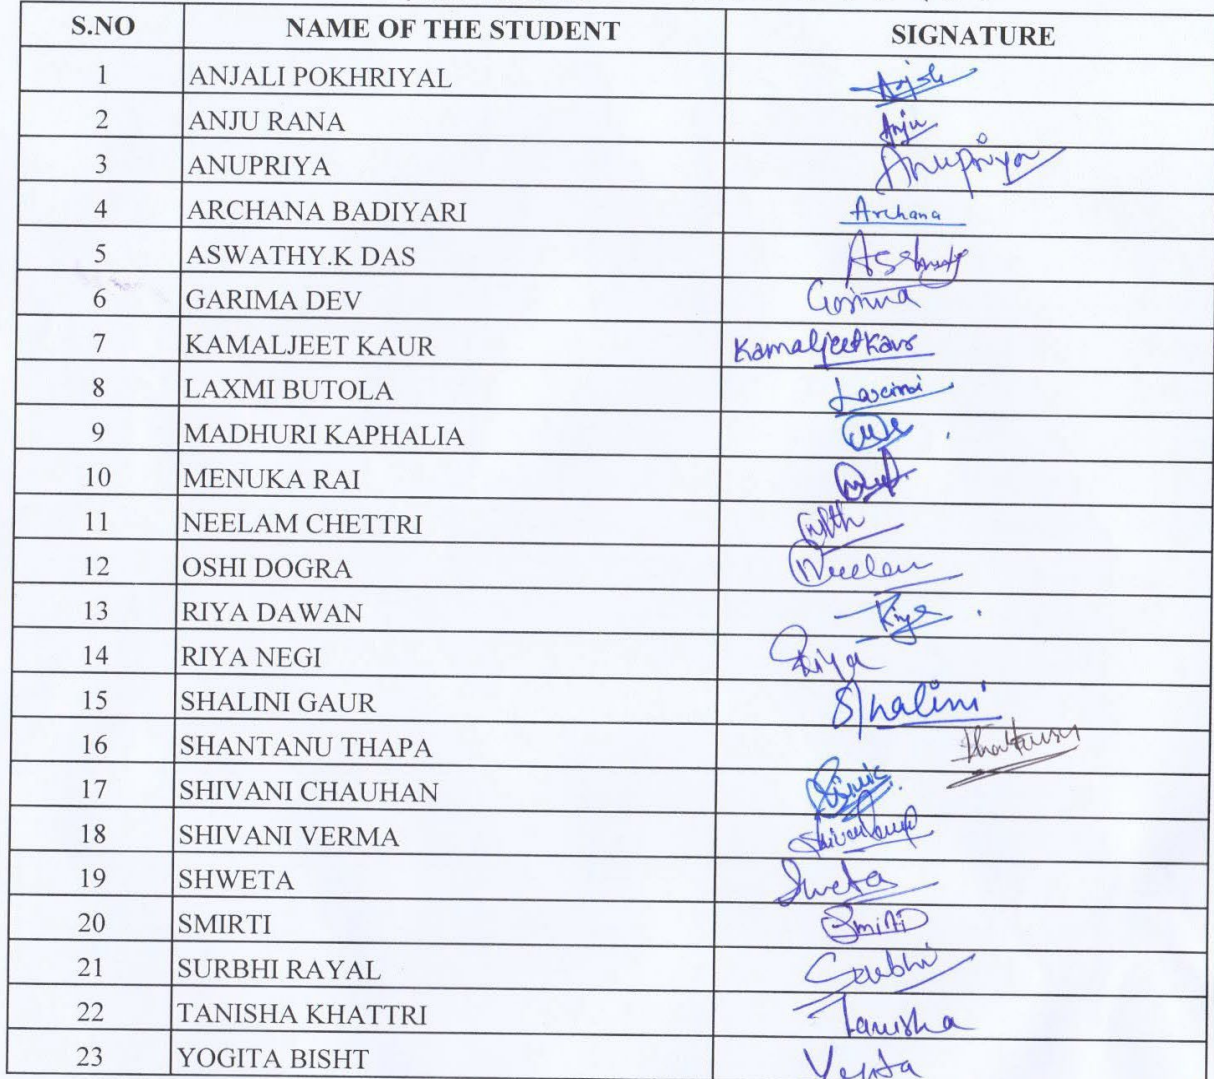 S.NO NAME OF THE STUDENT SIGNATURE
1 ANJALI POKHRIYAL
2 ANJU RANA Anju
3 ANUPRIYA Anupriya
4 ARCHANA BADIYARI Archana
5 ASWATHY.K DAS
6 GARIMA DEV Garima
7 KAMALJEET KAUR Kamaljeet Kaur
8 LAXMI BUTOLA Laxmi
9 MADHURI KAPHALIA
10 MENUKA RAI
11 NEELAM CHETTRI
12 OSHI DOGRA Neelam
13 RIYA DAWAN Riya
14 RIYA NEGI Riya
15 SHALINI GAUR Shalini
16 SHANTANU THAPA
17 SHIVANI CHAUHAN
18 SHIVANI VERMA
19 SHWETA Shweta
20 SMIRTI Smirti
21 SURBHI RAYAL Surbhi
22 TANISHA KHATTRI Tanisha
23 YOGITA BISHT Yogita